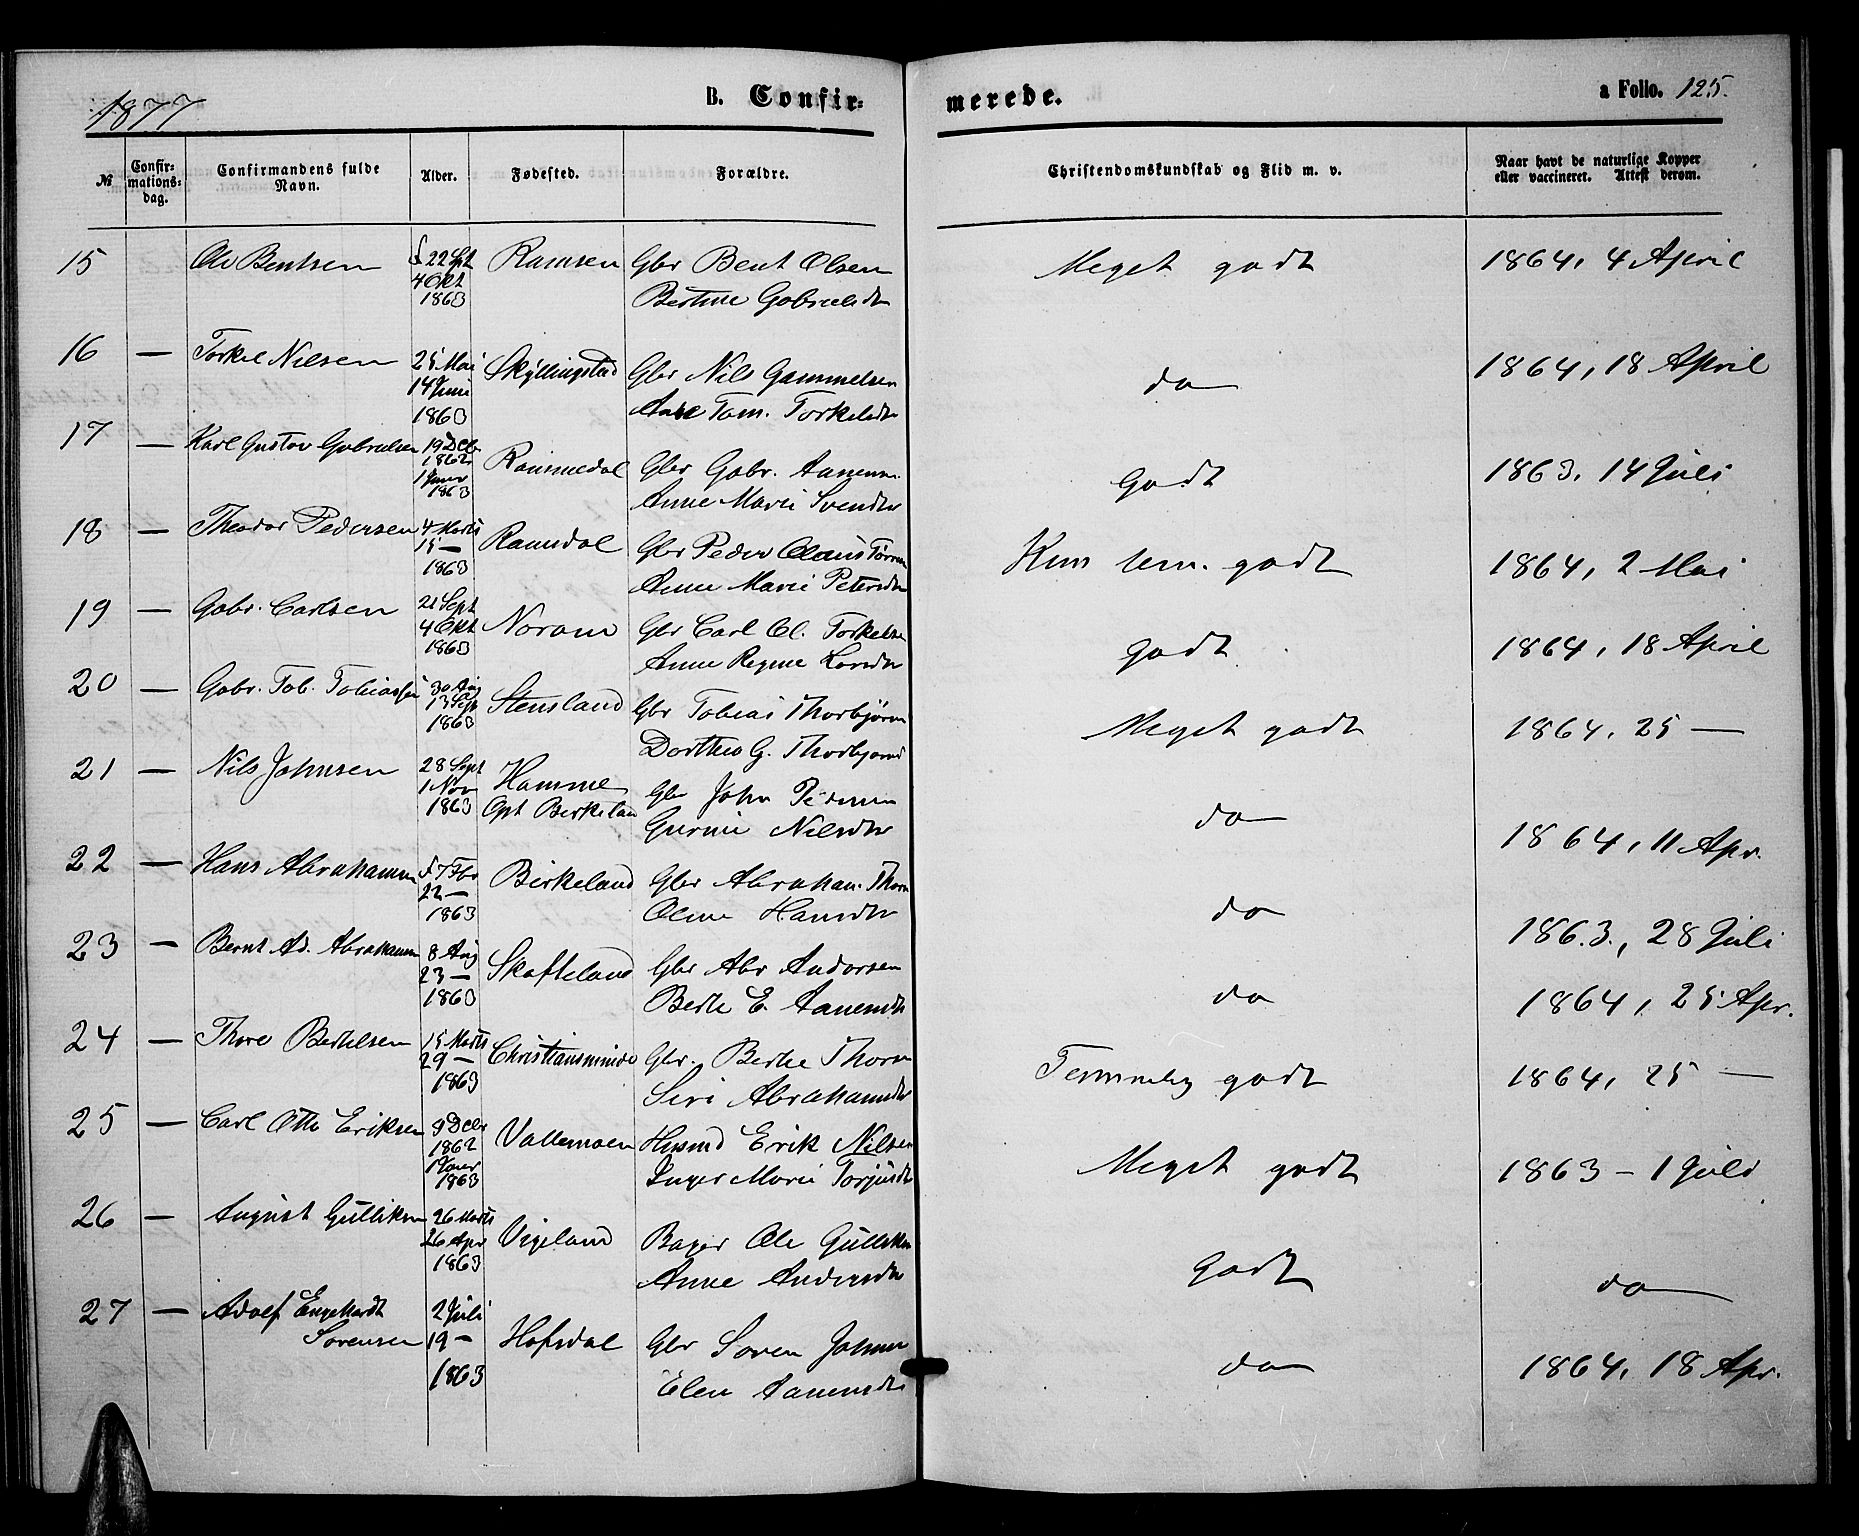 1877 B. Confir= merede. a Folio. 125.
№ Confir=mations=dag. Confirmandens fulde Navn. Alder. Fødested. Forældre. Christendomskundskab og Flid m. v. Naar havt de naturlige Kopper eller vaccineret. Attest derom.
15 Ole Bentsen f 22 Spt Ramsen Gbr Bent Olsen Meget godt 1864, 4 April
4 Okt Bertine Gabrielsdtr
1863
16 — Torkel Nilsen 25 Mai Skyllingstad Gbr Nils Gammelsen do 1864, 18 April
14 Juni Tom. Torkelsdtr
1863
17 — Karl Gustav Gabrielsen 19 Dcbr Rammedal Gbr Gabr. Aanensen Godt 1863, 14 Juli
1862
1 Januar Anne Marie Svendsdtr
1863
18 — Theodor Pedersen 4 Marts Ramdal Gbr Peder Claus Kun tem. godt 1864, 2 Mai
15 — Anne Marie Petersdtr
1863
19 — Gabr. Carlsen 21 Sept Noram Gbr Carl Cl. Torkelsen godt 1864, 18 April
4 Okt Anne Regine Larsdtr
1863
20 — Gabr. Tob. Tobiassen 30 Aug Stensland Gbr Tobias Thorbjørnsen Meget godt 1864, 25 —
13 Sept Dorthea G. Thorbjørnsd
1863
21 — Nils Johnsen 28 Sept Homme Gbr John Pedersen do 1864, 11 Apr.
1 Nov Opt Birkeland Gurine Nilsdtr
1863
22 — Hans Abrahamsen f 7 Fbr Birkeland Gbr Abraham Thorsn do 1863, 28 Juli
22 — Oline Hansdtr
1863
23 — Bernt Ad. Abrahamsen 8 Aug Skofteland Gbr Abr Andorsen do 1864, 25 Apr.
23 — Berte E. Aanensdtr
1863
24 — Thore Bertelsen 15 Marts Christiansminde Gbr. Bertel Thorsn Temmelig godt 1864, 25 —
29 — Siri Abrahamsdtr
1863
25 — Carl Otto Eriksen 9 Dcbr Vallemoen Husmd Erik Nilsen Meget godt 1863 – 1 Juli
1862
1 Januar Inger Marie Torjusdtr
1863
26 — August Gulliksen 26 Marts Vigeland Bager Ole Gulliksen Godt do
26 Apr Anne Andersdtr
1863
27 — Adolf Engelhardt 2 Juli Hofsdal Gbr Soren Johnsen do 1864, 18 Apr.
Sorensen 19 — Elen Aanensdtr
1863